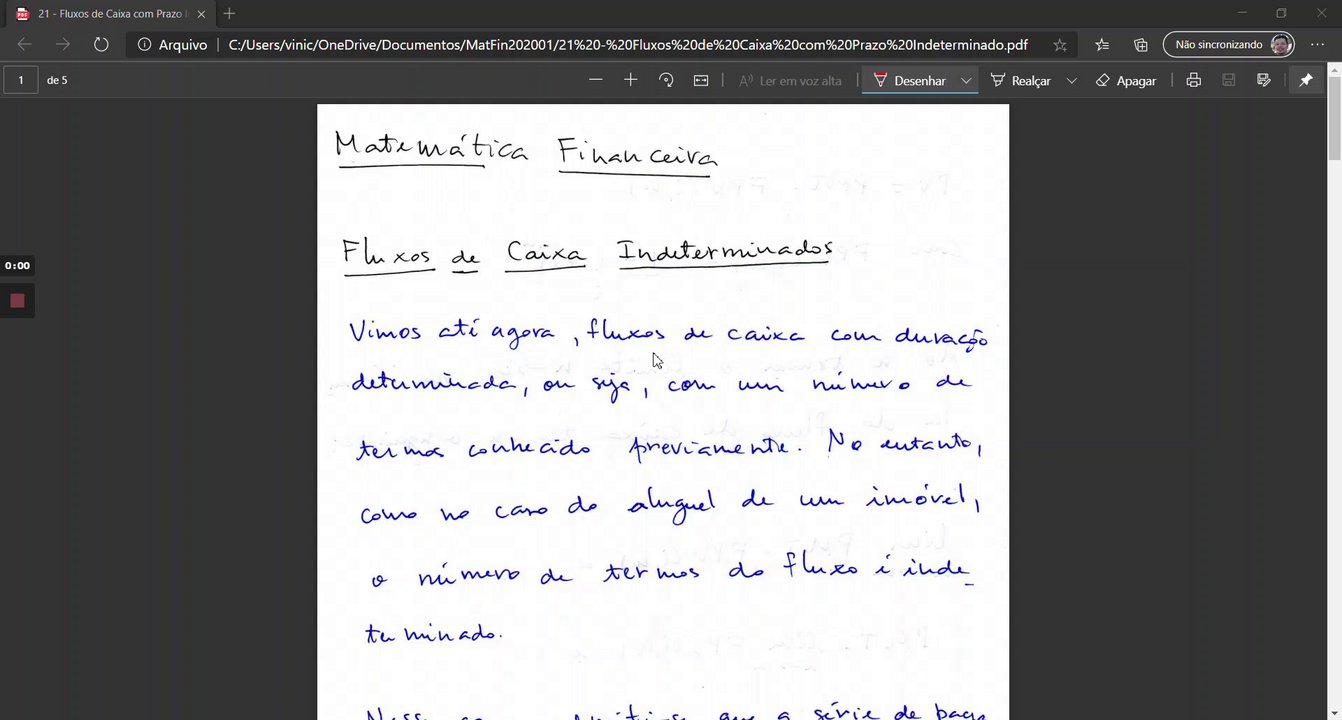 21 - Fluxos de Caixa com Prazo I
Arquivo
C:/Users/vinic/OneDrive/Documentos/MatFin202001/21%20-%20Fluxos%20de%20Caixa%20com%20Prazo%20Indeterminado.pdf
Não sincronizando
1
de 5
Ler em voz alta
Desenhar
Realçar
Apagar
Matemática Financeira
Fluxos de Caixa Indeterminados
0:00
Vimos até agora, fluxos de caixa com duração
determinada, ou seja, com um número de
termos conhecido previamente. No entanto,
como no caso do aluguel de um imóvel,
o número de termos do fluxo é inde_
terminado.
que a série de